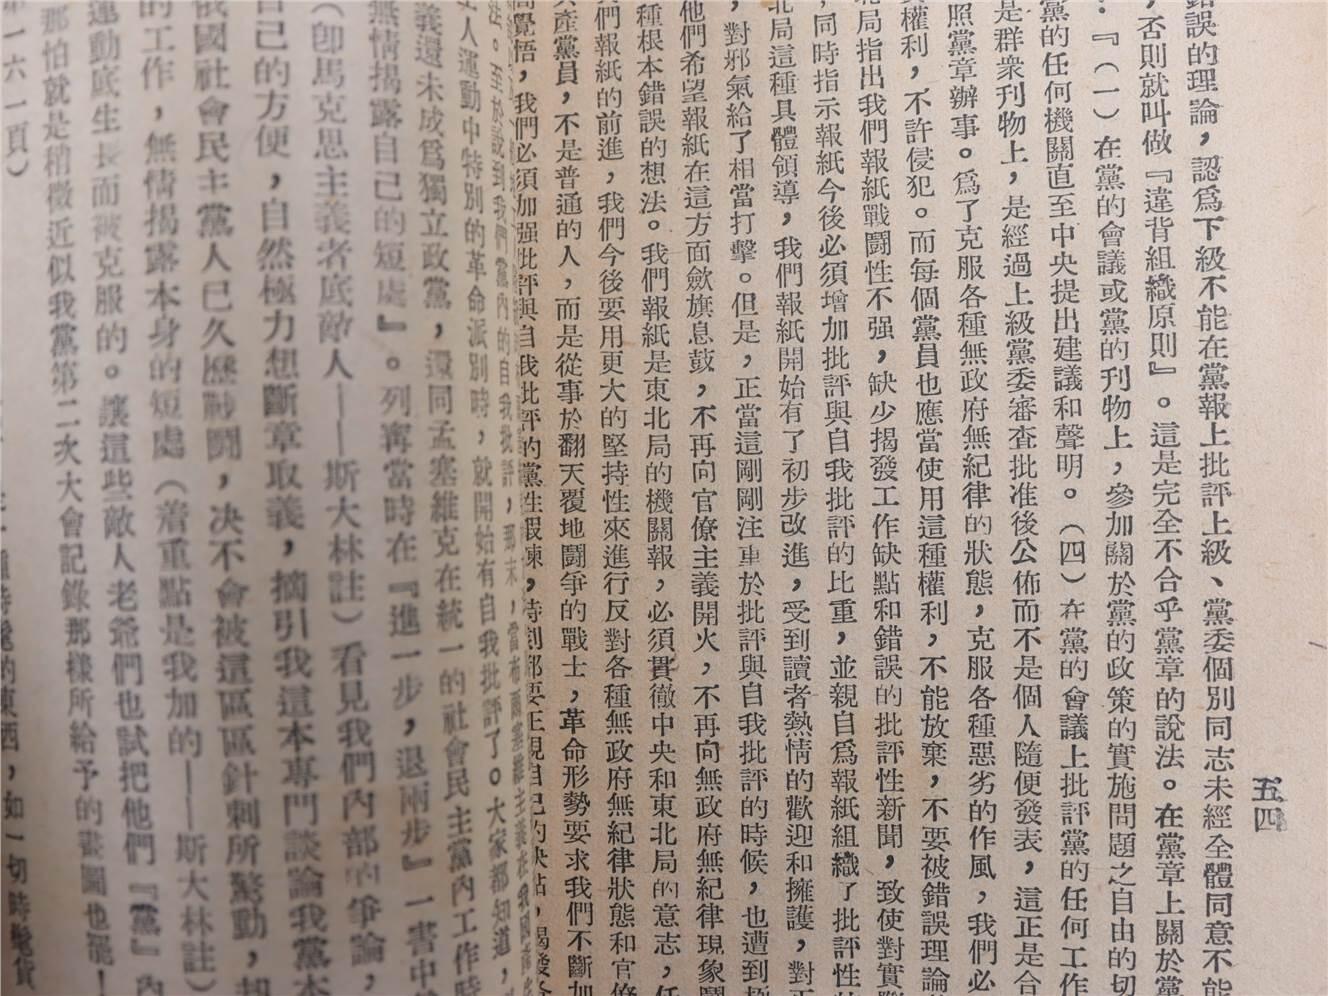 五四
錯誤的理論，認爲下級不能在黨報上批評上級、黨委個別同志未經全體同意不能
，否則就叫做『違背組織原則』。這是完全不合乎黨章的說法。在黨章上關於黨
：『（一）在黨的會議或黨的刊物上，參加關於黨的政策的實施問題之自由的切
黨的任何機關直至中央提出建議和聲明。（四）在黨的會議上批評黨的任何工作
是群衆刊物上，是經過上級黨委審查批准後公佈而不是個人隨便發表，這正是合
照黨章辦事。爲了克服各種無政府無紀律的狀態，克服各種惡劣的作風，我們必
權利，不許侵犯。而每個黨員也應當使用這種權利，不能放棄，不要被錯誤理論
北局指出我們報紙戰鬪性不强，缺少揭發工作缺點和錯誤的批評性新聞，致使對實際
，同時指示報紙今後必須增加批評與自我批評的比重，並親自爲報紙組織了批評性
北局這種具體領導，我們報紙開始有了初步改進，受到讀者熱情的歡迎和擁護，對
，對邪氣給了相當打擊。但是，正當這剛剛注重於批評與自我批評的時候，也遭到
他們希望報紙在這方面歛旗息鼓，不再向官僚主義開火，不再向無政府無紀律現象鬪
種根本錯誤的想法。我們報紙是東北局的機關報，必須貫徹中央和東北局的意志，
們報紙的前進，我們今後要用更大的堅持性來進行反對各種無政府無紀律狀態和官僚
共產黨員，不是普通的人，而是從事於翻天覆地鬪爭的戰士，革命形勢要求我們不斷加
高覺悟，我們必須加强批評與自我批評的黨性鍛煉，時刻都要正視自己的缺點，揭發
法。至於說到我們黨內的自我批評，那末，當布爾塞維主義在我國
工人運動中特別的革命派別時，就開始有自我批評了。大家都知道，
義還未成爲獨立政黨，還同孟塞維克在統一的社會民主黨內工作時
無情揭露自己的短處』。列寗當時在『進一步，退兩步』一書中
（卽馬克思主義者底敵人——斯大林註）看見我們內部的爭論，
自己的方便，自然極力想斷章取義，摘引我這本專門談論我黨
俄國社會民主黨人已久歷戰鬪，决不會被這區區針刺所驚動，
的工作，無情揭露本身的短處（着重點是我加的——斯大林註）
運動底生長而被克服的。讓這些敵人老爺們也試把他們『黨』內
那怕就是稍微近似我黨第二次大會記錄那樣所給予的畫圖也罷！
一六一頁）
的東西，如一切時髦貨